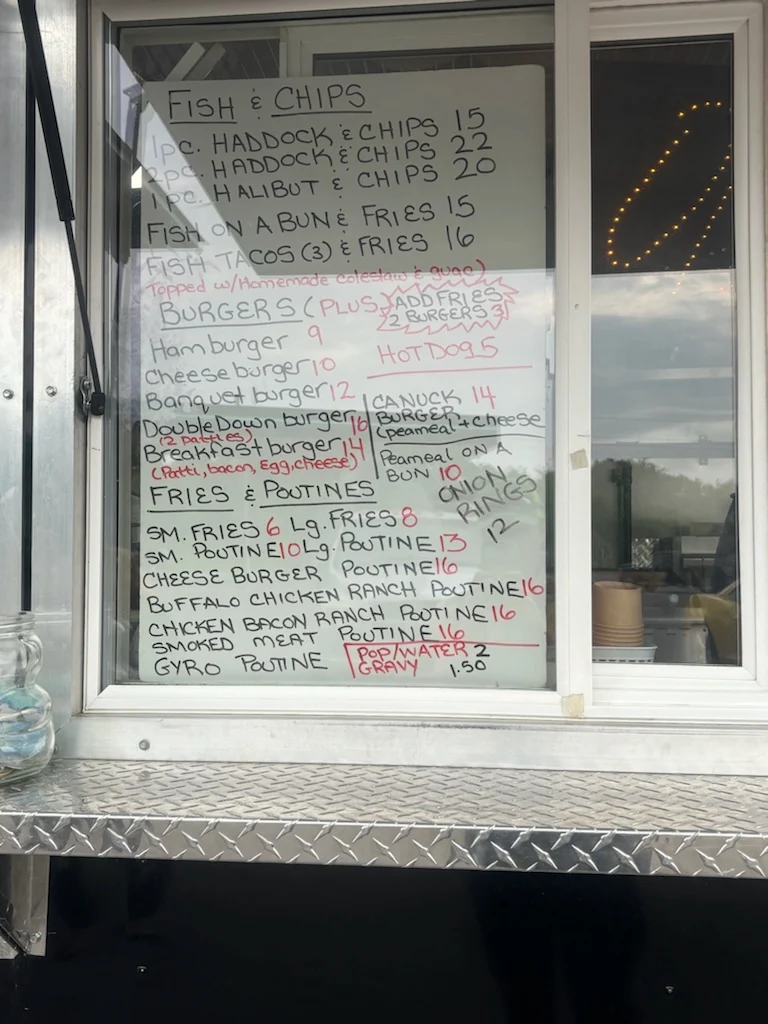 FISH & CHIPS
1pc. HADDOCK & CHIPS 15
2pc. HADDOCK & CHIPS 22
1 PC. HALIBUT & CHIPS 20
FISH ON A BUN & FRIES 15
FISH TACOS (3) & FRIES 16
Topped w/Homemade coleslaw & guac)
BURGERS (PLUS)
ADD FRIES
2 BURGERS 3
Hamburger 9
HOTDOG 5
Cheeseburger 10
Banquet burger 12
Double Down burger 16
(2 patties)
Breakfast burger 14
(Patti, bacon, Egg, cheese)
CANUCK 14
BURGER
(peameal + cheese
Peameal ON A
BUN 10
ONION
RINGS
12
FRIES & POUTINES
SM. FRIES 6 Lg. FRIES 8
SM. POUTINE 10 Lg. POUTINE 13
CHEESE BURGER POUTINE 16
BUFFALO CHICKEN RANCH POUTINE 16
CHICKEN BACON RANCH POUTINE 16
SMOKED MEAT POUTINE 16
GYRO POUTINE
POP/WATER 2
GRAVY 1.50